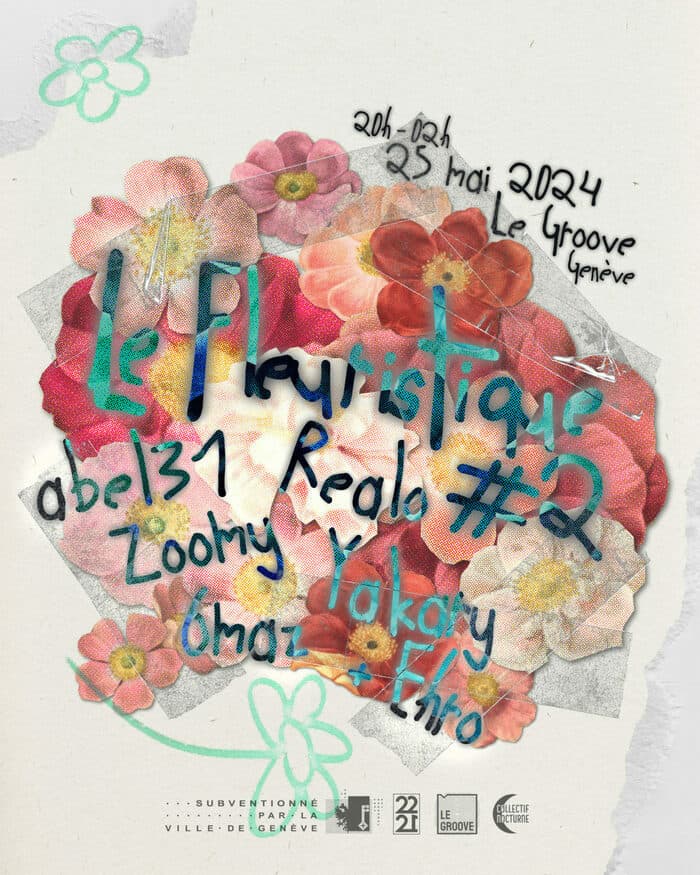 20h - 02h
25 mai 2024
Le Groove
Genève
Le Fleuristique
#2
abel31 Realo
Zoomy Yakary
6maz + Ehro
SUBVENTIONNÉ
PAR LA
VILLE·DE·GENÈVE
22
21
LE
GROOVE
COLLECTIF
NOCTURNE